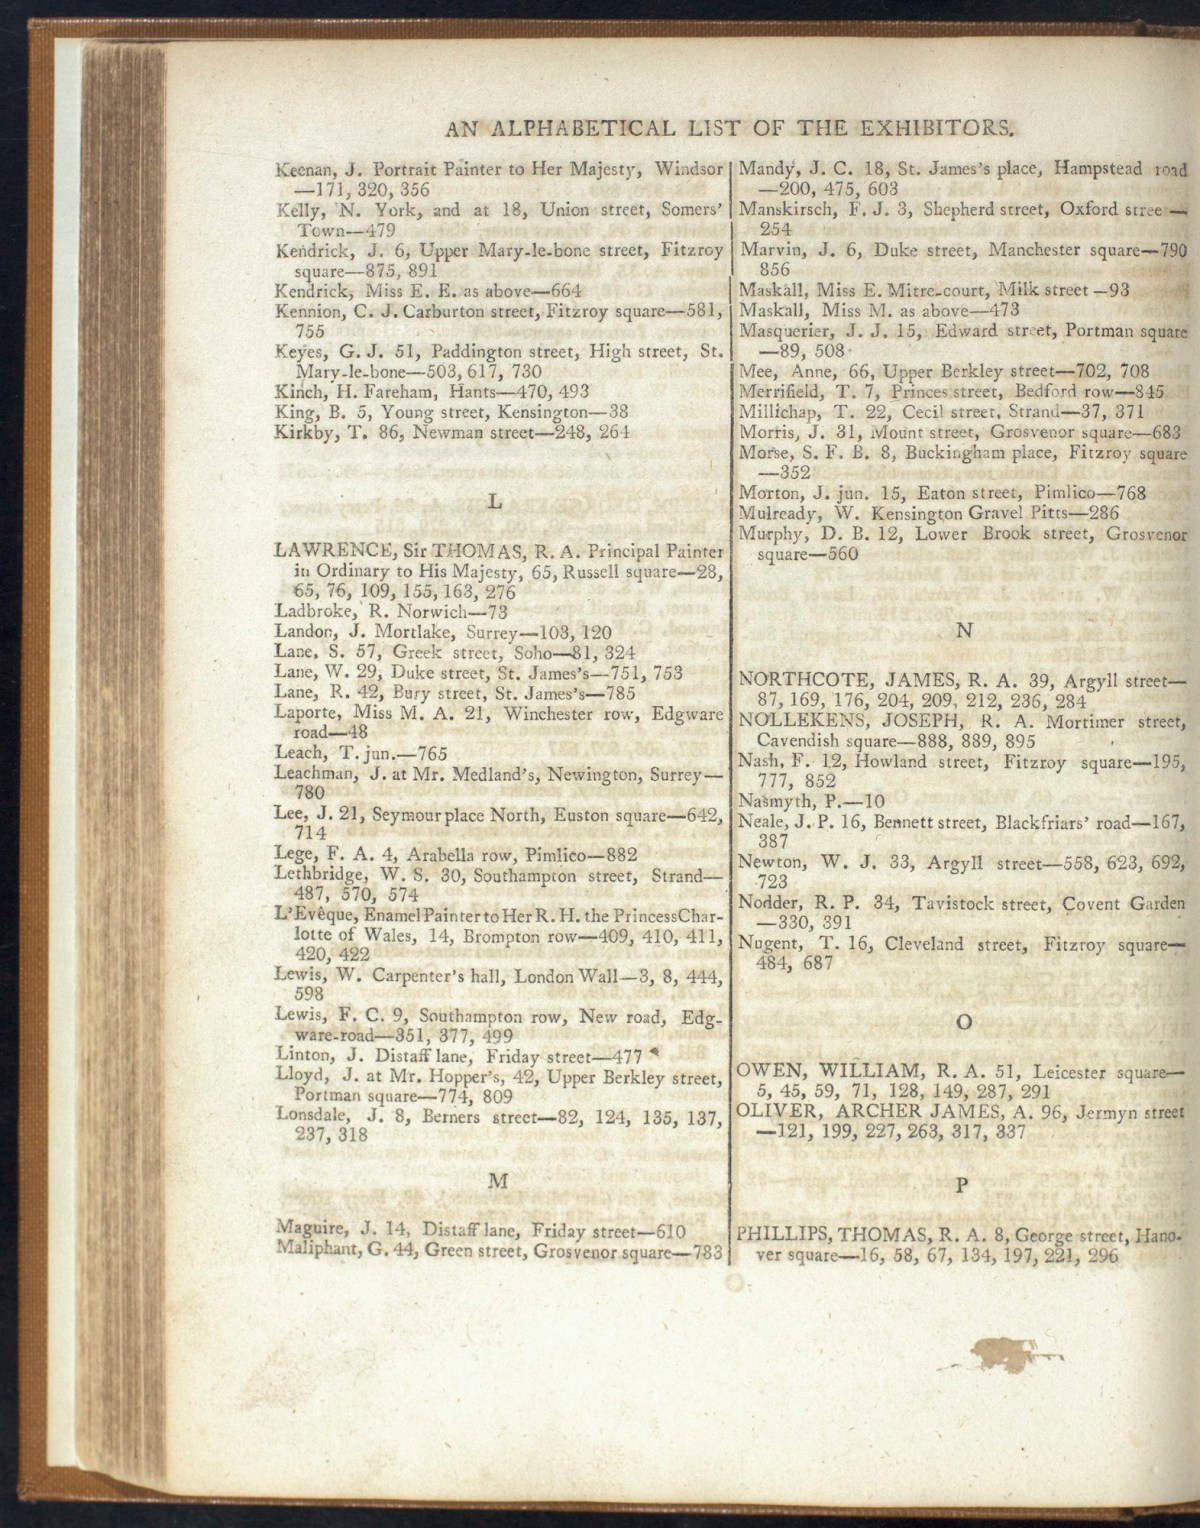 AN ALPHABETICAL LIST OF THE EXHIBITORS.
Keenan, J. Portrait Painter to Her Majesty, Windsor
—171, 320, 356
Kelly, N. York, and at 18, Union street, Somers'
Town—479
Kendrick, J. 6, Upper Mary-le-bone street, Fitzroy
square—875, 891
Kendrick, Miss E. E. as above—664
Kennion, C. J. Carburton street, Fitzroy square—581,
755
Keyes, G. J. 51, Paddington street, High street, St.
Mary-le-bone—503, 617, 730
Kinch, H. Fareham, Hants—470, 493
King, B. 5, Young street, Kensington—38
Kirkby, T. 86, Newman street—248, 264
L
LAWRENCE, Sir THOMAS, R. A. Principal Painter
in Ordinary to His Majesty, 65, Russell square—28,
65, 76, 109, 155, 163, 276
Ladbroke, R. Norwich—73
Landon, J. Mortlake, Surrey—103, 120
Lane, S. 57, Greek street, Soho—81, 324
Lane, W. 29, Duke street, St. James's—751, 753
Lane, R. 42, Bury street, St. James's—785
Laporte, Miss M. A. 21, Winchester row, Edgware
road—48
Leach, T. jun.—765
Leachman, J. at Mr. Medland's, Newington, Surrey—
780
Lee, J. 21, Seymour place North, Euston square—642,
714
Lege, F. A. 4, Arabella row, Pimlico—882
Lethbridge, W. S. 30, Southampton street, Strand—
487, 570, 574
L'Evêque, Enamel Painter to Her R. H. the Princess Char-
lotte of Wales, 14, Brompton row—409, 410, 411,
420, 422
Lewis, W. Carpenter's hall, London Wall—3, 8, 444,
598
Lewis, F. C. 9, Southampton row, New road, Edg-
ware-road—351, 377, 499
Linton, J. Distaff lane, Friday street—477
Lloyd, J. at Mr. Hopper's, 42, Upper Berkley street,
Portman square—774, 809
Lonsdale, J. 8, Berners street—82, 124, 135, 137,
237, 318
M
Maguire, J. 14, Distaff lane, Friday street—610
Maliphant, G. 44, Green street, Grosvenor square—783
Mandy, J. C. 18, St. James's place, Hampstead road
—200, 475, 603
Manskirsch, F. J. 3, Shepherd street, Oxford stree —
254
Marvin, J. 6, Duke street, Manchester square—790
856
Maskall, Miss E. Mitre-court, Milk street—93
Maskall, Miss M. as above—473
Masquerier, J. J. 15, Edward street, Portman square
—89, 508
Mee, Anne, 66, Upper Berkley street—702, 708
Merrifield, T. 7, Princes street, Bedford row—845
Millichap, T. 22, Cecil street, Strand—37, 371
Morris, J. 31, Mount street, Grosvenor square—683
Morse, S. F. B. 8, Buckingham place, Fitzroy square
—352
Morton, J. jun. 15, Eaton street, Pimlico—768
Mulready, W. Kensington Gravel Pitts—286
Murphy, D. B. 12, Lower Brook street, Grosvenor
square—560
N
NORTHCOTE, JAMES, R. A. 39, Argyll street—
87, 169, 176, 204, 209, 212, 236, 284
NOLLEKENS, JOSEPH, R. A. Mortimer street,
Cavendish square—888, 889, 895
Nash, F. 12, Howland street, Fitzroy square—195,
777, 852
Nasmyth, P.—10
Neale, J. P. 16, Bennett street, Blackfriars' road—167,
387
Newton, W. J. 33, Argyll street—558, 623, 692,
723
Nodder, R. P. 34, Tavistock street, Covent Garden
—330, 391
Nugent, T. 16, Cleveland street, Fitzroy square—
484, 687
O
OWEN, WILLIAM, R. A. 51, Leicester square—
5, 45, 59, 71, 128, 149, 287, 291
OLIVER, ARCHER JAMES, A. 96, Jermyn street
—121, 199, 227, 263, 317, 337
P
PHILLIPS, THOMAS, R. A. 8, George street, Hano-
ver square—16, 58, 67, 134, 197, 221, 296